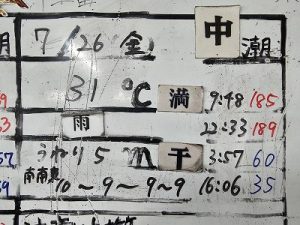 7/26 金 中潮
31℃ 満 9:48 185
雨 22:33 189
うねり 5m 干 3:57 60
南南東 10~9~9~9 16:06 35